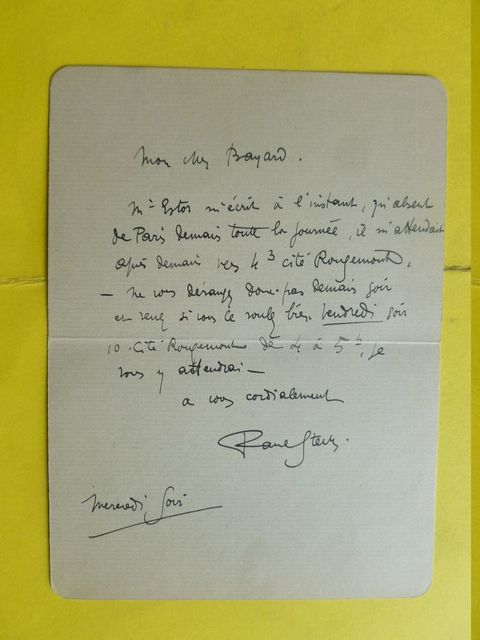 Mon cher Bayard.
Mr Estor m'écrit à l'instant, qu'absent
de Paris demain toute la journée, il m'attendait
après demain vers 4 h cité Rougemont.
— ne vous dérangez donc pas demain soir
et venez si vous le voulez bien, Vendredi soir
10. Cité Rougemont de 4 à 5 h. je
vous y attendrai —
a vous cordialement
Mercredi soir